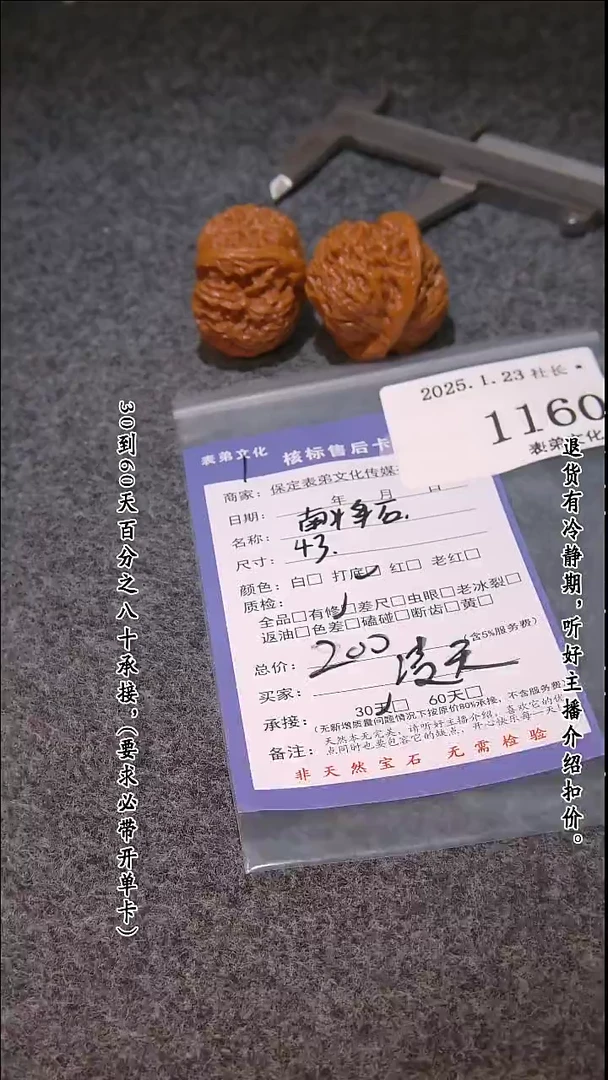 2025.1.23 社长·
1160
表弟文化
表弟文化 核标售后卡
商家：保定表弟文化传媒
日期： 年 月 日
名称：南将石.
尺寸：43.
颜色：白□ 打底□ 红□ 老红□
质检：
全品□有修□差尺□虫眼□老冰裂□
返油□色差□磕碰□断齿□黄□
总价：200 (含5%服务费)
买家：
承接：30天□ 60天□
(无新增质量问题情况下按原价80%承接，不含服务费)
备注：天然本无完美，请听好主播介绍，喜欢它的优
点同时也要包容它的缺点，开心快乐每一天
非天然宝石 无需检验
30到60天百分之八十承接，(要求必带开单卡)
退货有冷静期，听好主播介绍扣价。